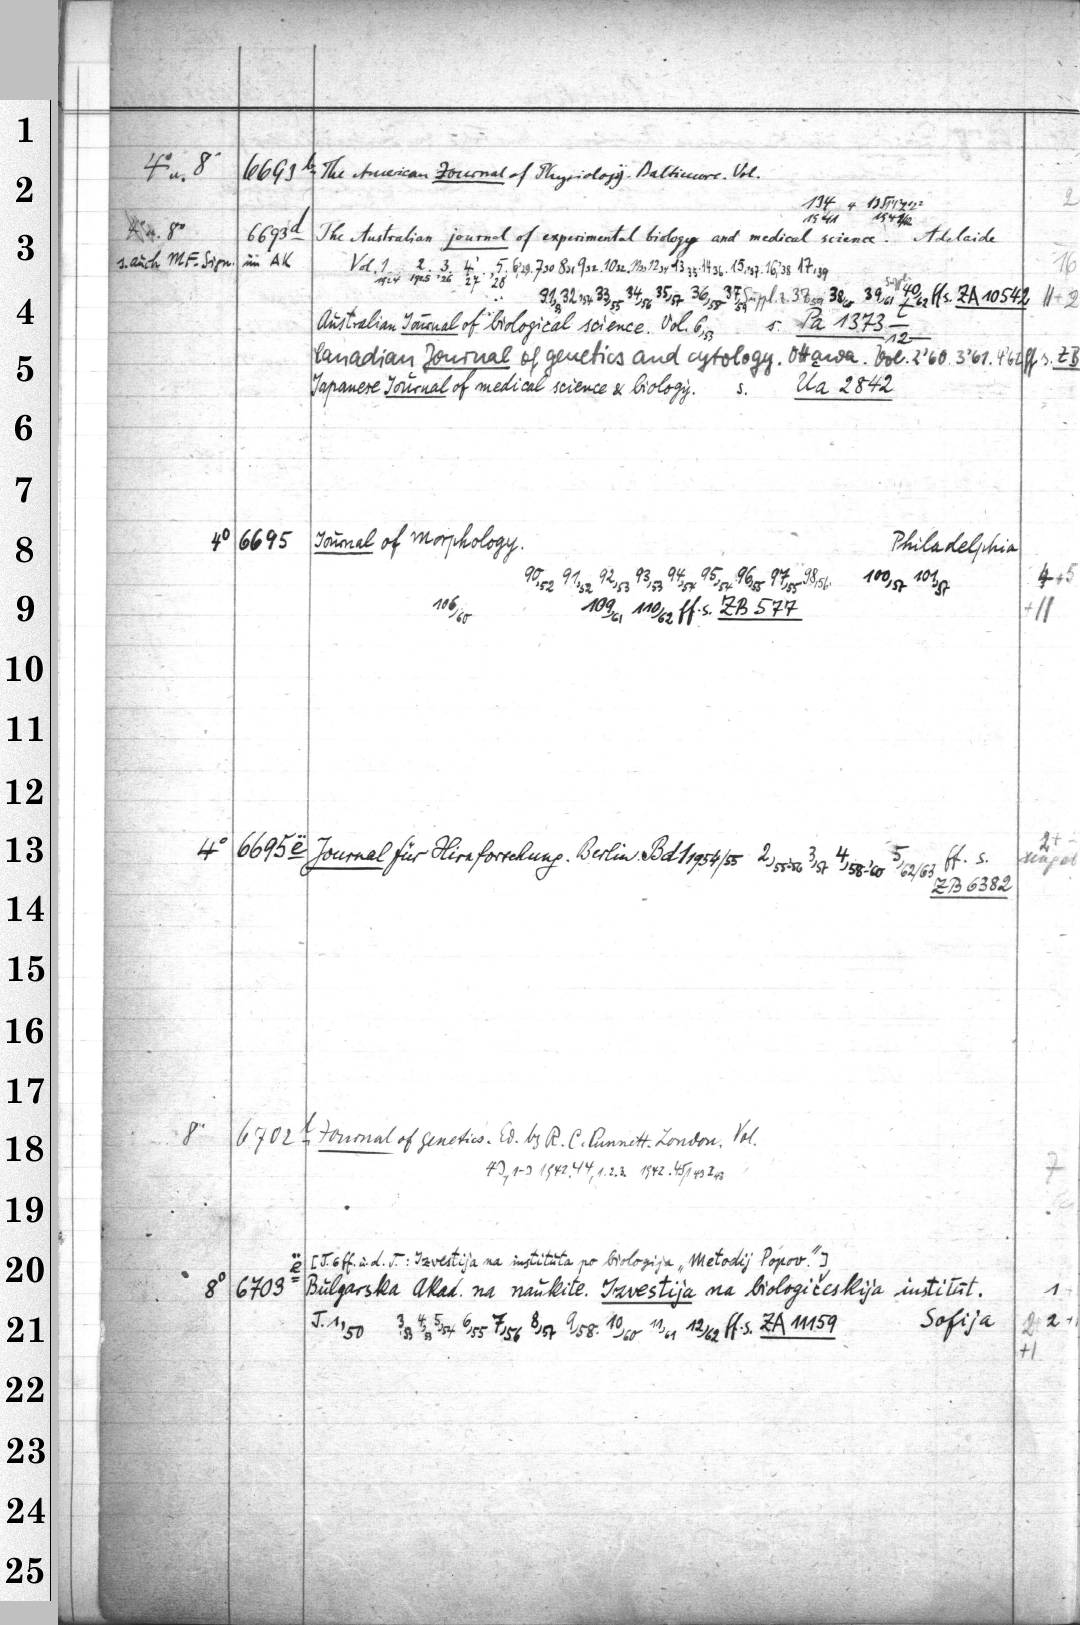 1
2
3
4
5
6
7
8
9
10
11
12
13
14
15
16
17
18
19
20
21
22
23
24
25
4° u. 8° 6693 b The American Journal of Physiology. Baltimore. Vol.
134 u 135
1941
4° u. 8° 6693 d The Australian journal of experimental biology and medical science. Adelaide
s. auch MF-Sign. im AK Vol. 1 1924 2 1925 3 '26 4 '27 5 '28 6,'29. 7,30 8,31 9,32. 10,32. 11,33 12,34 13,35 14,36. 15,'37. 16,'38 17,'39
31,53 32,'54 33,55 34,56 35,57 36,58 37,59 Suppl. z. 37,59 38,60 39,61 40,62 ff s. ZA 10542 11+2
Australian Journal of biological science. Vol. 6,53 s. Pa 1373 t/12
Canadian Journal of genetics and cytology. Ottawa. Vol. 2'60. 3'61. 4'62 ff s. ZB
Japanese Journal of medical science & biology. s. Ua 2842
4° 6695 Journal of Morphology. Philadelphia
90,52 91,52 92,53 93,53 94,54 95,54 96,55 97,55 98,56. 100,57 101,57 4+5
106/60 109/61 110/62 ff. s. ZB 577 +11
4° 6695 ë Journal für Hirnforschung. Berlin. Bd 1 1954/55 2,55-56 3,57 4,58-60 5,62/63 ff. s. 2+
ZB 6382
8° 6702 Journal of genetics. Ed. by R. C. Punnett. London. Vol.
43, 1-3 1942. 44, 1. 2. 3. 1942. 45, 7
[J. 6 ff. u. d. T.: Izvestija na instituta po biologija „Metodij Popov."]
8° 6703 ë Bulgarska Akad. na naukite. Izvestija na biologičeskija institut. 1
J. 1,50 3,53 4,53 5,54 6,55 7,56 8,57 9,58. 10/60 11,61 12/62 ff. s. ZA 11159 Sofija 2
+1